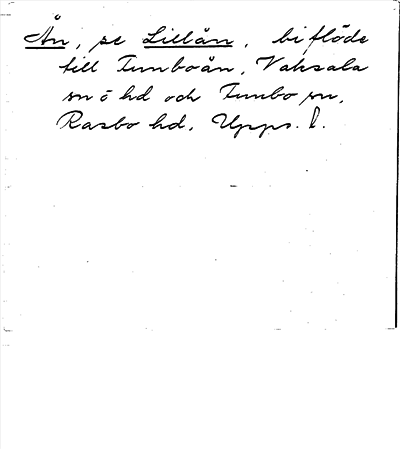 Ån, se Lillån, biflöde
till Funboån, Vaksala
sn o hd och Funbo sn,
Rasbo hd, Upps. l.